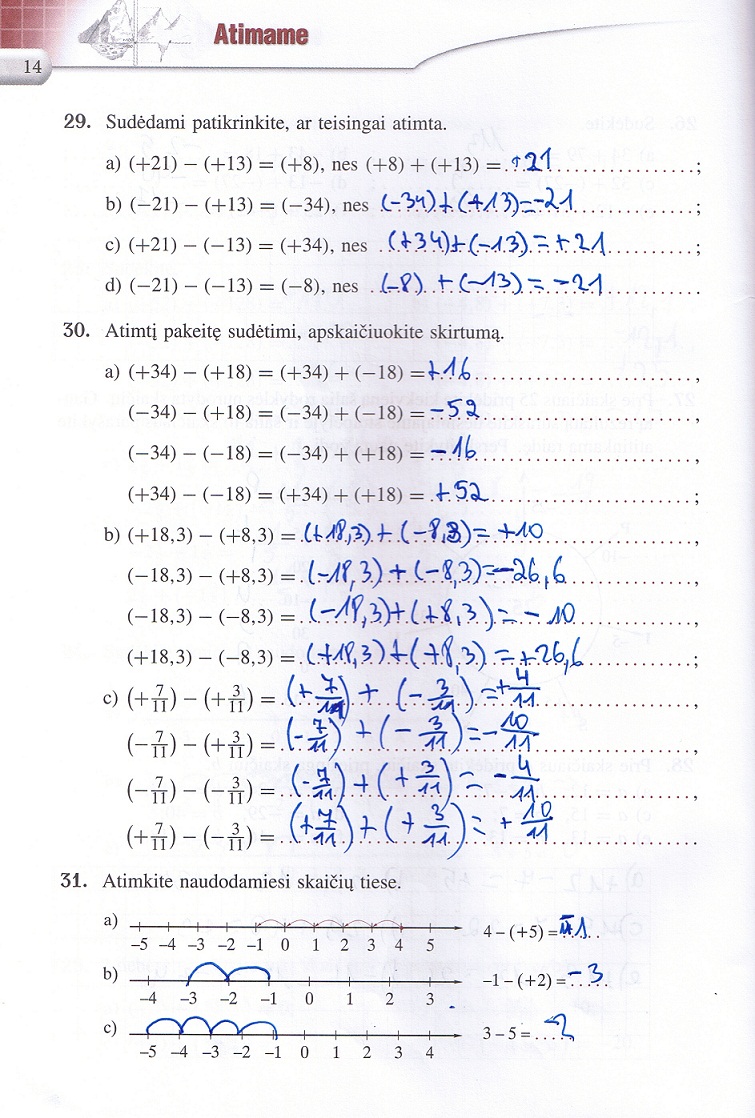 Atimame
14
29. Sudėdami patikrinkite, ar teisingai atimta.
a) (+21) − (+13) = (+8), nes (+8) + (+13) = +21;
b) (−21) − (+13) = (−34), nes (−34)+(+13)=−21;
c) (+21) − (−13) = (+34), nes (+34)+(−13)=+21;
d) (−21) − (−13) = (−8), nes (−8) + (−13) = −21
30. Atimtį pakeitę sudėtimi, apskaičiuokite skirtumą.
a) (+34) − (+18) = (+34) + (−18) = +16,
(−34) − (+18) = (−34) + (−18) = −52,
(−34) − (−18) = (−34) + (+18) = −16,
(+34) − (−18) = (+34) + (+18) = +52;
b) (+18,3) − (+8,3) = (+18,3) + (−8,3) = +10,
(−18,3) − (+8,3) = (−18,3) + (−8,3) = −26,6,
(−18,3) − (−8,3) = (−18,3)+(+8,3) = −10,
(+18,3) − (−8,3) = (+18,3)+(+8,3) = +26,6;
c) (+7/11) − (+3/11) = (+7/11) + (−3/11) = +4/11,
(−7/11) − (+3/11) = (−7/11) + (−3/11) = −10/11,
(−7/11) − (−3/11) = (−7/11) + (+3/11) = −4/11,
(+7/11) − (−3/11) = (+7/11) + (+3/11) = +10/11
31. Atimkite naudodamiesi skaičių tiese.
a) −5 −4 −3 −2 −1 0 1 2 3 4 5 4 − (+5) = −1
b) −4 −3 −2 −1 0 1 2 3 −1 − (+2) = −3
c) −5 −4 −3 −2 −1 0 1 2 3 4 3 − 5 =